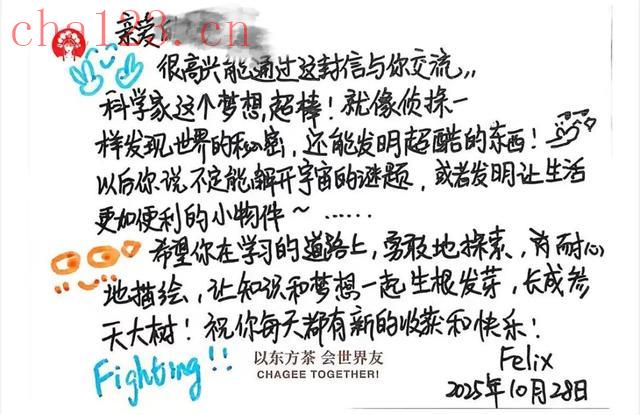 cha123.cn
亲爱
很高兴能通过这封信与你交流,,
科学家这个梦想,超棒！就像侦探一
样发现世界的秘密，还能发明超酷的东西！
以后你说不定能解开宇宙的谜题，或者发明让生活
更加便利的小物件～……
希望你在学习的道路上，勇敢地探索，用耐心
地描绘，让知识和梦想一起生根发芽，长成参
天大树！祝你每天都有新的收获和快乐！
以东方茶 会世界友
CHAGEE TOGETHER!
Fighting!!
Felix
2025年10月28日